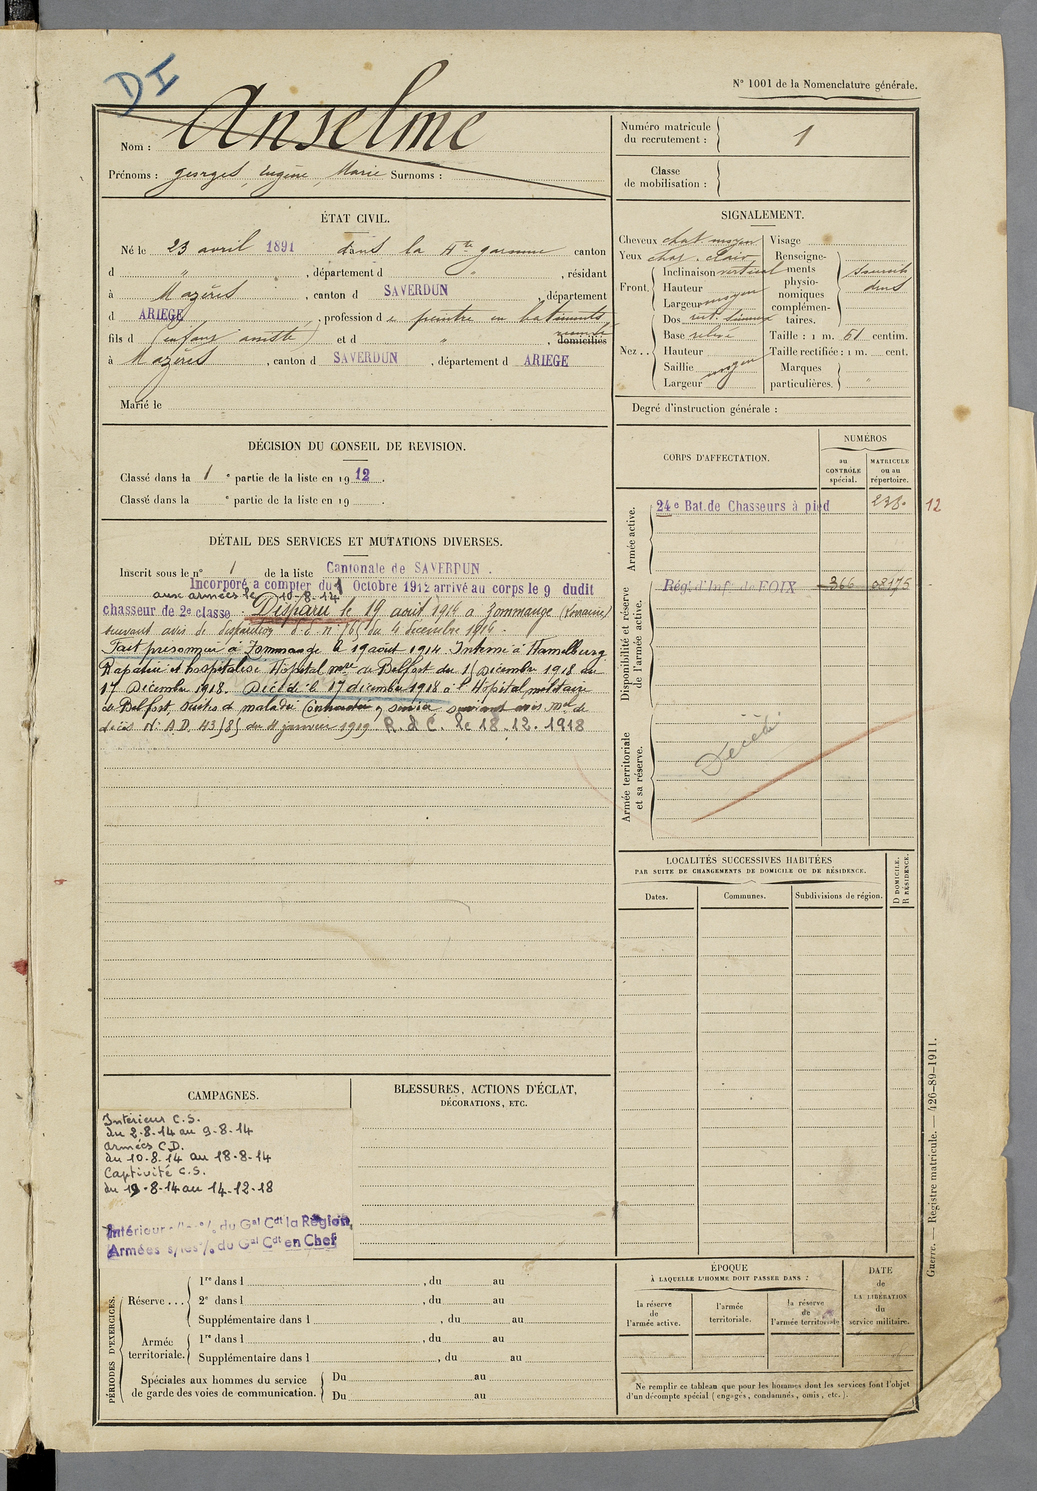 DI
N° 1001 de la Nomenclature générale.
Nom : Anselme
Prénoms : georges, Eugène, Marie Surnoms :
Numéro matricule du recrutement : 1
Classe de mobilisation :
ÉTAT CIVIL.
Né le 23 avril 1891 dans la Hte garonne canton
d " , département d " , résidant
à Mazères , canton d SAVERDUN , département
d ARIEGE , profession de peintre en batiments
fils d (enfant assisté) et d " , domiciliés
à Mazères , canton d SAVERDUN , département d ARIEGE
Marié le
SIGNALEMENT.
Cheveux chat. moyen Visage
Yeux chat. clair
Front. Inclinaison vertical
Hauteur
Largeur moyen
Nez . . Dos rect. sinueux
Base relevé
Hauteur
Saillie moyen
Largeur
Renseignements physionomiques complémentaires.
Taille : 1 m. 61 centim.
Taille rectifiée : 1 m. cent.
Marques particulières. "
Degré d'instruction générale :
DÉCISION DU CONSEIL DE REVISION.
Classé dans la 1 e partie de la liste en 1912.
Classé dans la e partie de la liste en 19 .
CORPS D'AFFECTATION.
NUMÉROS
au CONTRÔLE spécial.
MATRICULE ou au répertoire.
Armée active.
24e Bat. de Chasseurs à pied 238. 12
Disponibilité et réserve de l'armée active.
Rég. d'Inf. de FOIX 366 08175
Armée territoriale et sa réserve.
Décédé
DÉTAIL DES SERVICES ET MUTATIONS DIVERSES.
Inscrit sous le n° 1 de la liste Cantonale de SAVERDUN .
Incorporé a compter du 1 Octobre 1912 arrivé au corps le 9 dudit
aux armées le 10-8-14
chasseur de 2e classe. Disparu le 19 août 1914 a Zommange (Lorraine)
suivant avis de disparition du 4 décembre 1914.
Fait prisonnier à Zommange le 19 août 1914. Interné à Hamelburg
Rapatrié et hospitalisé Hôpital mre de Belfort du 15 Décembre 1918 au
17 Décembre 1918. Décédé le 17 décembre 1918 à l'Hôpital militaire
de Belfort, suites de maladie contractée en service suivant avis mel de
décès N° A.D. 43585 du 4 janvier 1919. R.d.C. le 18.12.1918
LOCALITÉS SUCCESSIVES HABITÉES
PAR SUITE DE CHANGEMENTS DE DOMICILE OU DE RÉSIDENCE.
Dates.
Communes.
Subdivisions de région.
D DOMICILE. R RÉSIDENCE.
CAMPAGNES.
Intérieur C.S.
du 2-8-14 au 9-8-14
Armées C.D.
du 10-8-14 au 18-8-14
Captivité C.S.
du 19-8-14 au 14-12-18
Intérieur s/les % du Gal Cdt la Région
Armées s/les % du Gal Cdt en Chef
BLESSURES, ACTIONS D'ÉCLAT,
DÉCORATIONS, ETC.
PÉRIODES D'EXERCICES.
Réserve . . .
1re dans l , du au
2e dans l , du au
Supplémentaire dans l , du au
Armée territoriale.
1re dans l , du au
Supplémentaire dans l , du au
Spéciales aux hommes du service de garde des voies de communication.
Du au
Du au
ÉPOQUE
À LAQUELLE L'HOMME DOIT PASSER DANS :
la réserve de l'armée active.
l'armée territoriale.
la réserve de l'armée territoriale
DATE de LA LIBÉRATION du service militaire.
Ne remplir ce tableau que pour les hommes dont les services font l'objet
d'un décompte spécial (engagés, condamnés, omis, etc.).
Guerre. — Registre matricule. — 426-89-1911.